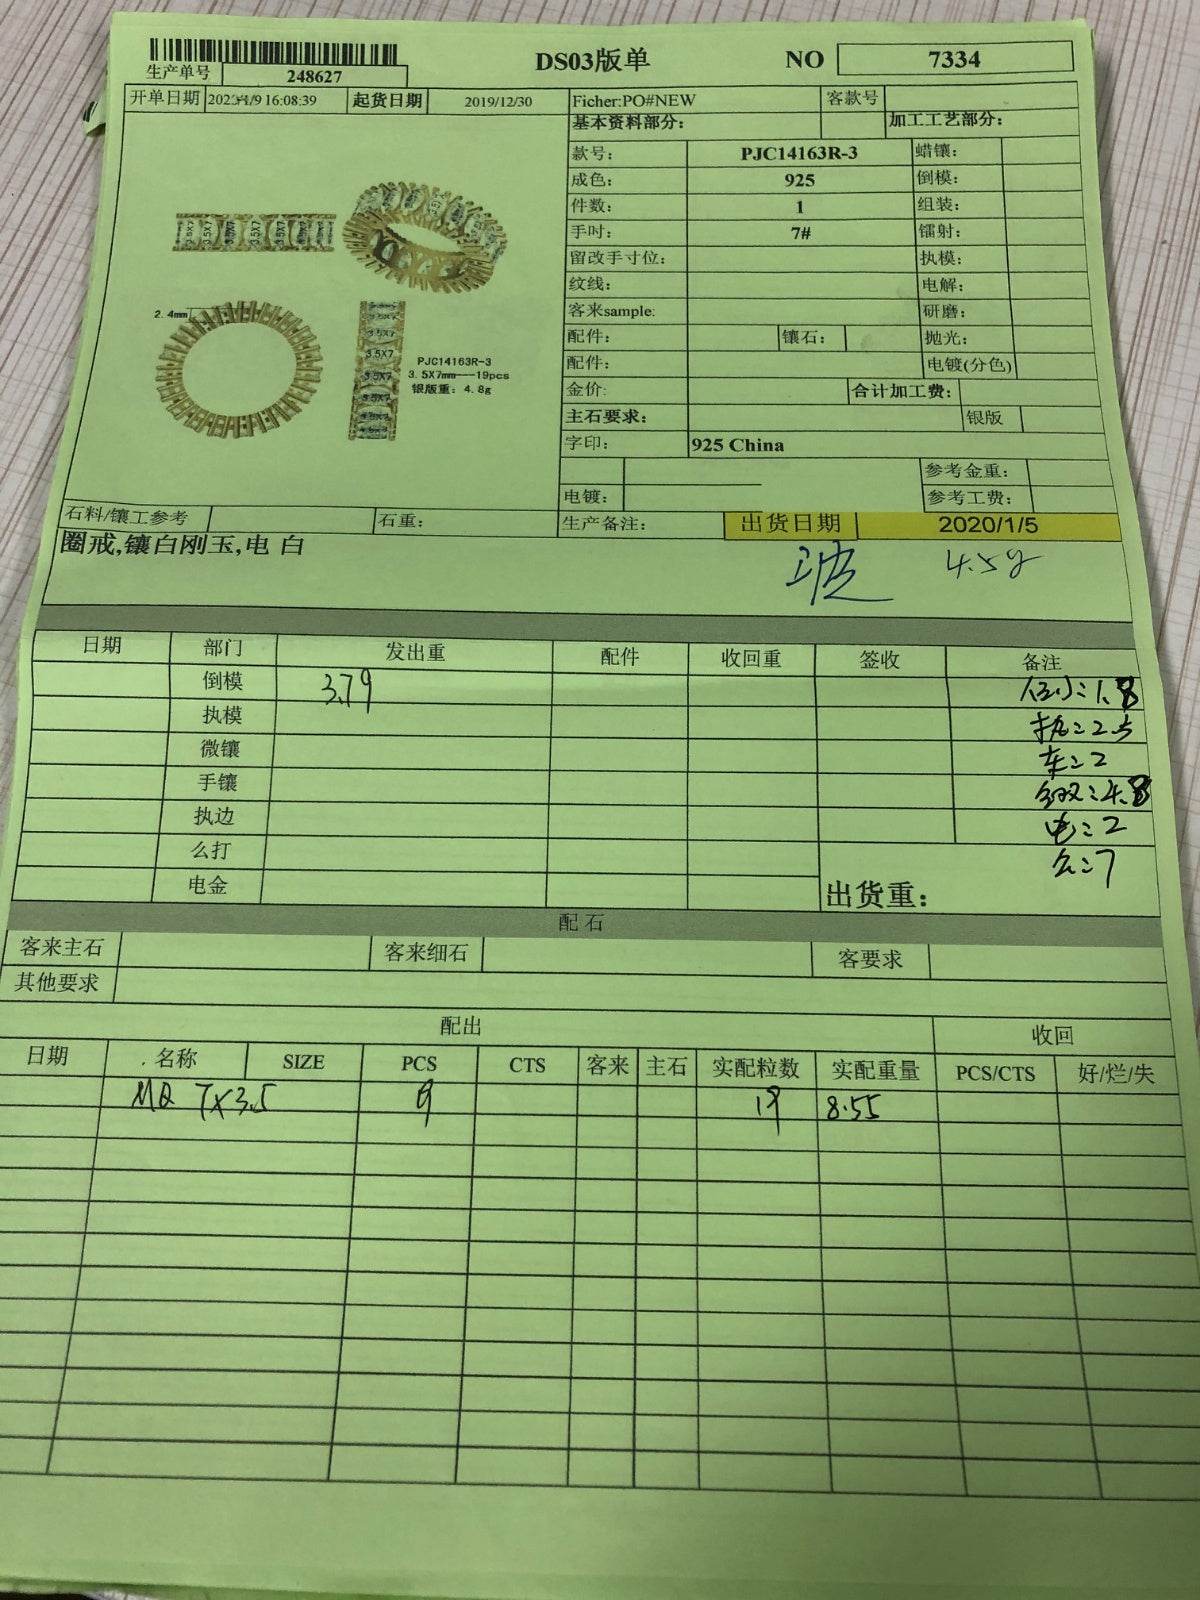 生产单号 248627 DS03版单 NO 7334
开单日期 16:08:39 起货日期 2019/12/30 Ficher:PO#NEW 客款号
基本资料部分: 加工工艺部分:
款号: PJC14163R-3 蜡镶:
成色: 925 倒模:
件数: 1 组装:
手吋: 7# 镭射:
留改手寸位: 执模:
纹线: 电解:
客来sample: 研磨:
配件: 镶石: 抛光:
配件: 电镀(分色)
金价: 合计加工费:
主石要求: 银版
字印: 925 China
参考金重:
电镀: 参考工费:
2.4mm
3.5X7 3.5X7 3.5X7 3.5X7
3.5X7
3.5X7
3.5X7
3.5X7
PJC14163R-3
3.5X7mm---19pcs
银版重: 4.8g
石料/镶工参考 石重: 生产备注: 出货日期 2020/1/5
圈戒,镶白刚玉,电 白
4.5g
日期 部门 发出重 配件 收回重 签收 备注
倒模 3.79 1.8
执模 执:2.5
微镶 车:2
手镶 4.8
执边 电:2
么打 么:7
电金 出货重:
配石
客来主石 客来细石 客要求
其他要求
配出 收回
日期 名称 SIZE PCS CTS 客来 主石 实配粒数 实配重量 PCS/CTS 好/烂/失
MQ 7X3.5 19 8.55